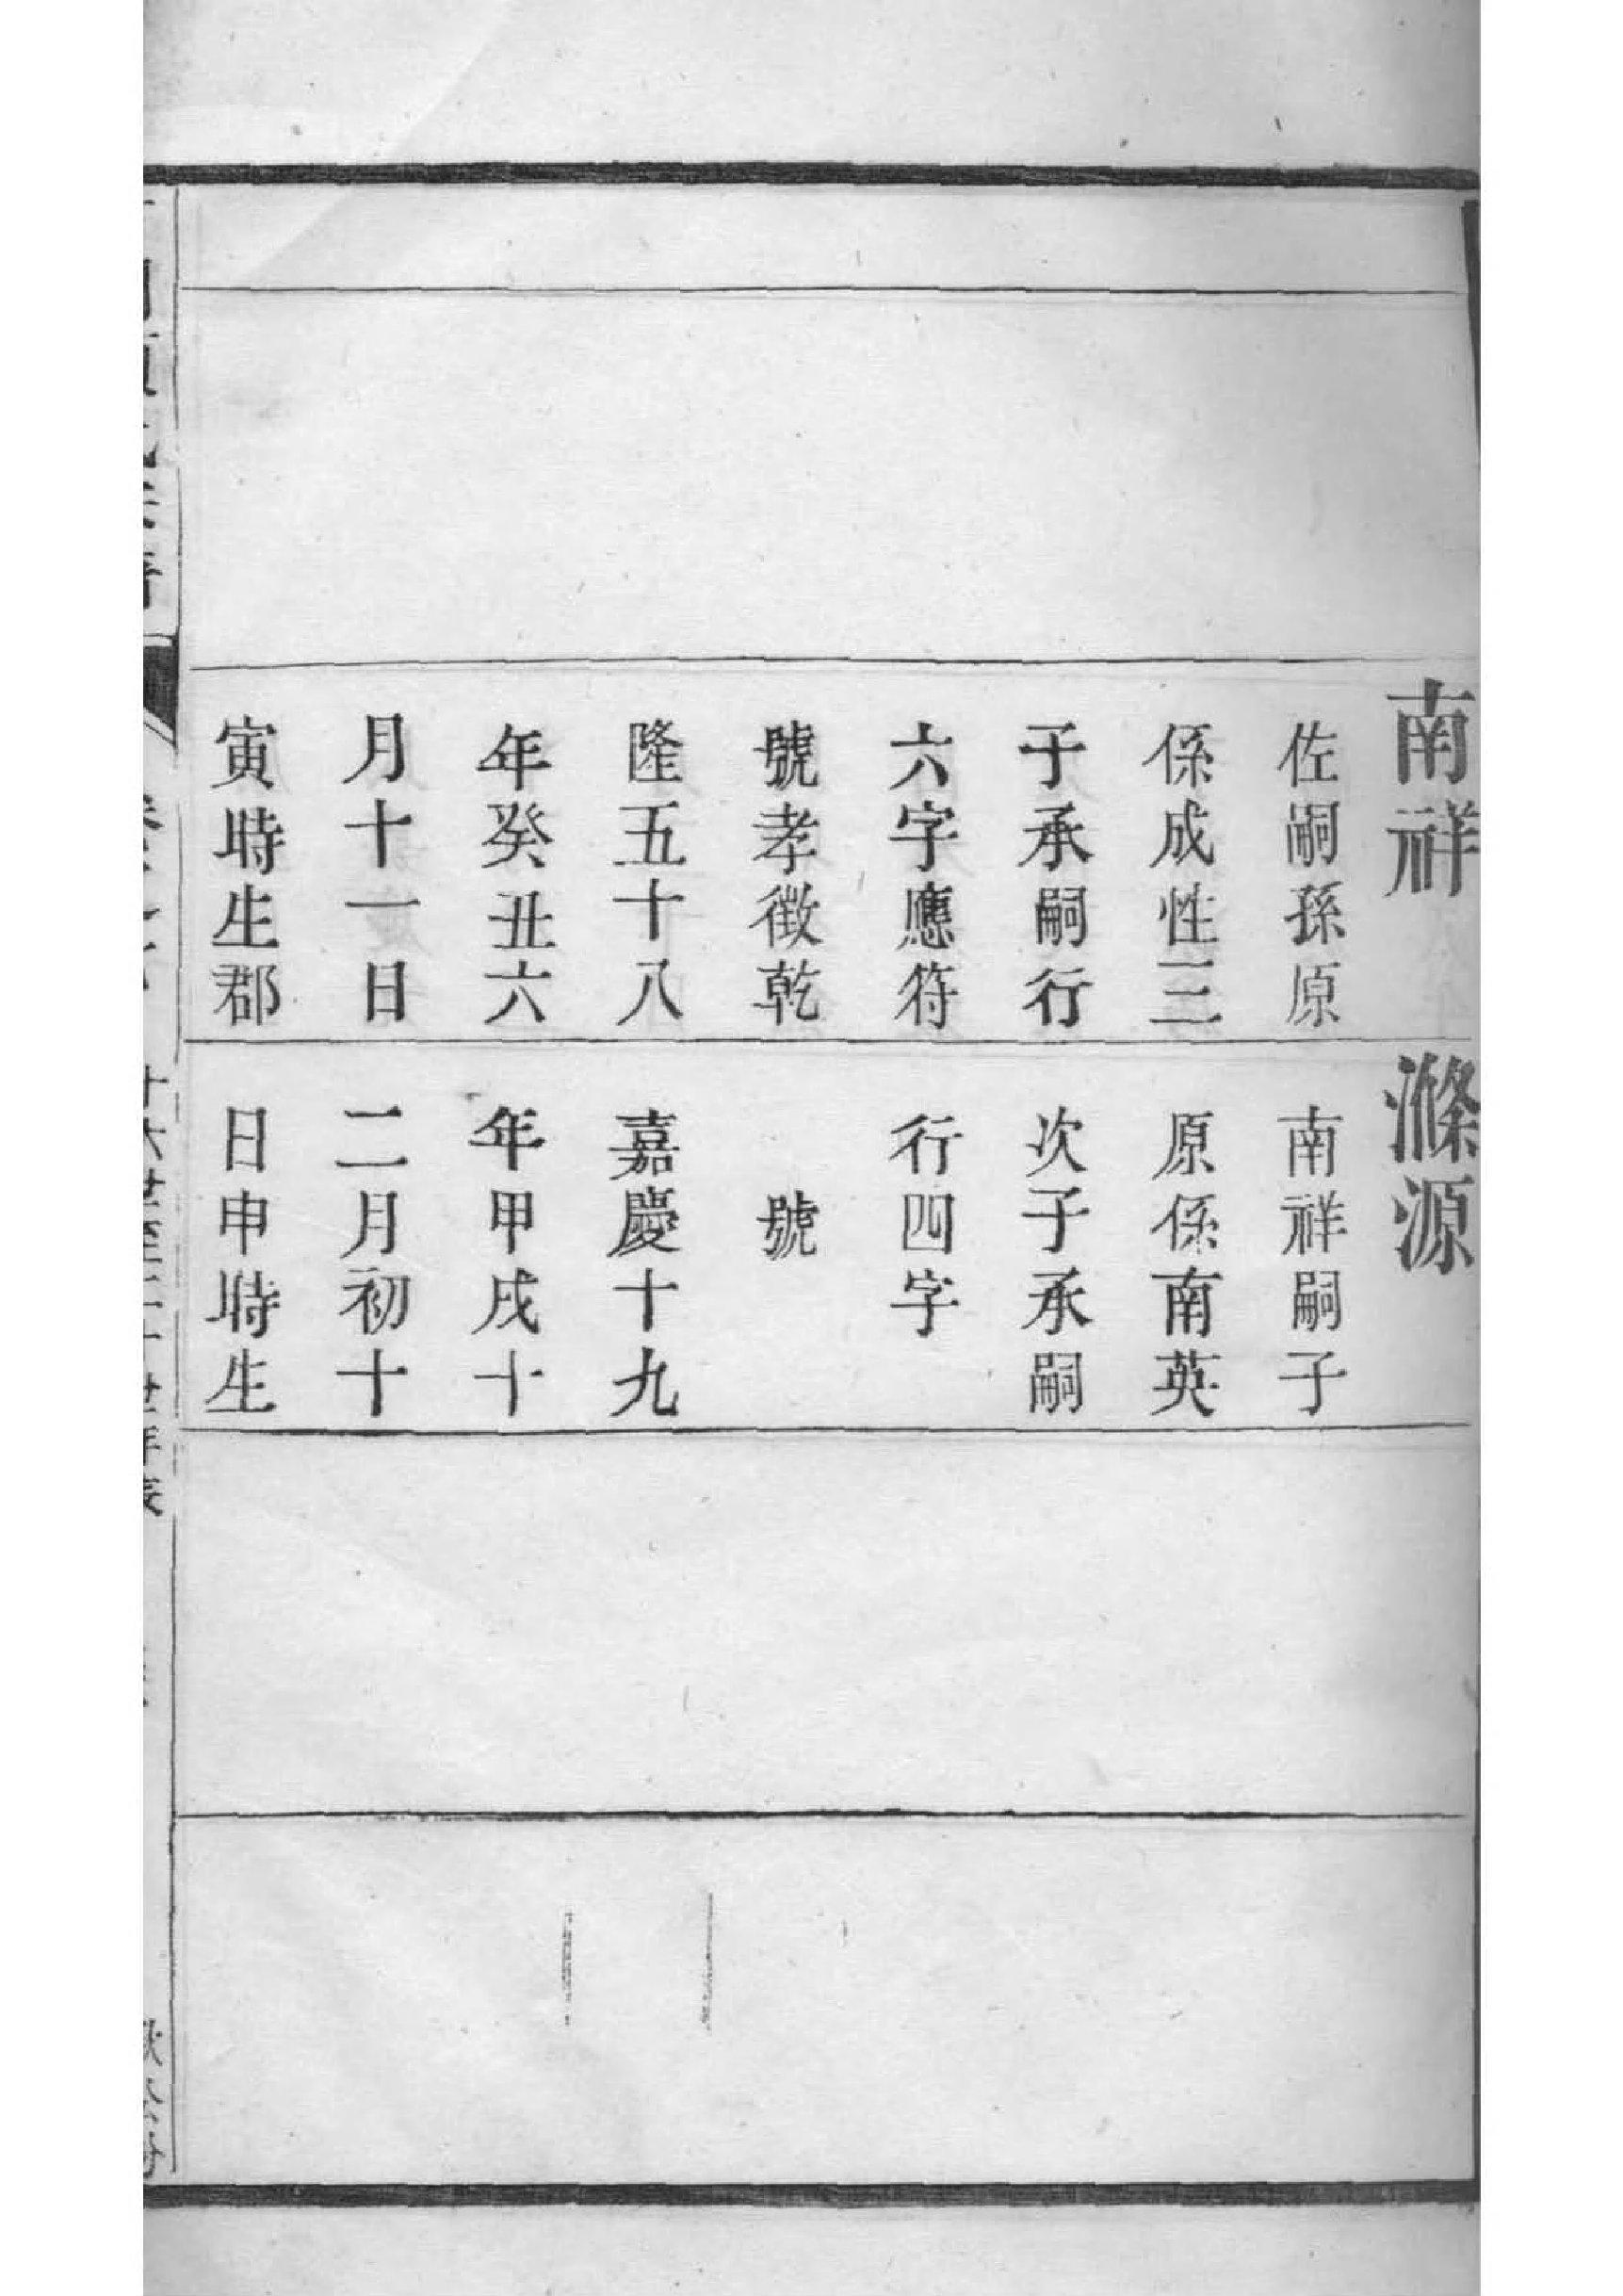 南祥
佐嗣孫原
係成性三
子承嗣行
六字應符
號孝徵乾
隆五十八
年癸丑六
月十一日
寅時生郡
滌源
南祥嗣子
原係南英
次子承嗣
行四字
號
嘉慶十九
年甲戌十
二月初十
日申時生